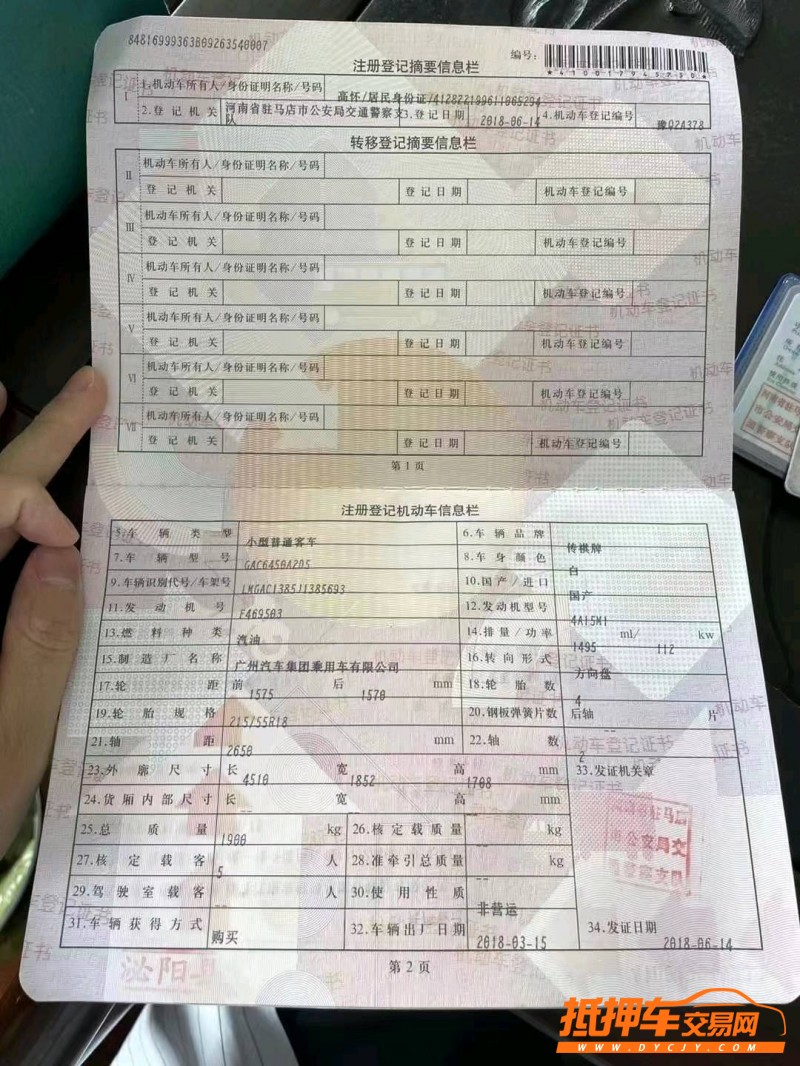 8481699936380926354000​7
编号:
*410017945750*
注册登记摘要信息栏
I 1.机动车所有人/身份证明名称/号码 高怀/居民身份证/412822199611065294
2.登记机关 河南省驻马店市公安局交通警察支队 3.登记日期 2018-06-14 4.机动车登记编号 豫Q2A378
转移登记摘要信息栏
II 机动车所有人/身份证明名称/号码
登记机关 登记日期 机动车登记编号
III 机动车所有人/身份证明名称/号码
登记机关 登记日期 机动车登记编号
IV 机动车所有人/身份证明名称/号码
登记机关 登记日期 机动车登记编号
V 机动车所有人/身份证明名称/号码
登记机关 登记日期 机动车登记编号
VI 机动车所有人/身份证明名称/号码
登记机关 登记日期 机动车登记编号
VII 机动车所有人/身份证明名称/号码
登记机关 登记日期 机动车登记编号
第1页
注册登记机动车信息栏
5.车辆类型 小型普通客车 6.车辆品牌 传祺牌
7.车辆型号 GAC6450A2D5 8.车身颜色 白
9.车辆识别代号/车架号 LMGAC1385J1385693 10.国产/进口 国产
11.发动机号 F469503 12.发动机型号 4A15M1
13.燃料种类 汽油 14.排量/功率 1495 ml/ 112 kw
15.制造厂名称 广州汽车集团乘用车有限公司 16.转向形式 方向盘
17.轮距 前 1575 后 1570 mm 18.轮胎数 4
19.轮胎规格 215/55R18 20.钢板弹簧片数 后轴 -- 片
21.轴距 2650 mm 22.轴数 2
23.外廓尺寸 长 4510 宽 1852 高 1708 mm 33.发证机关章
24.货厢内部尺寸 长 -- 宽 -- 高 -- mm
25.总质量 1900 kg 26.核定载质量 -- kg
27.核定载客 5 人 28.准牵引总质量 -- kg
29.驾驶室载客 -- 人 30.使用性质 非营运
31.车辆获得方式 购买 32.车辆出厂日期 2018-03-15 34.发证日期 2018-06-14
第2页
泌阳县
抵押车交易网
WWW.DYCJY.COM